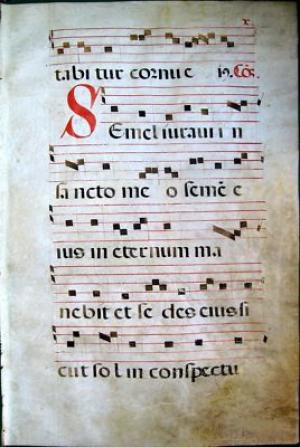 x.
tabi tur cornu e ı9. Cõs.
Semel iuraui in
sa ncto me o semē e
ius in eternum ma
nebit et se des eius si
cut so l in conspectu